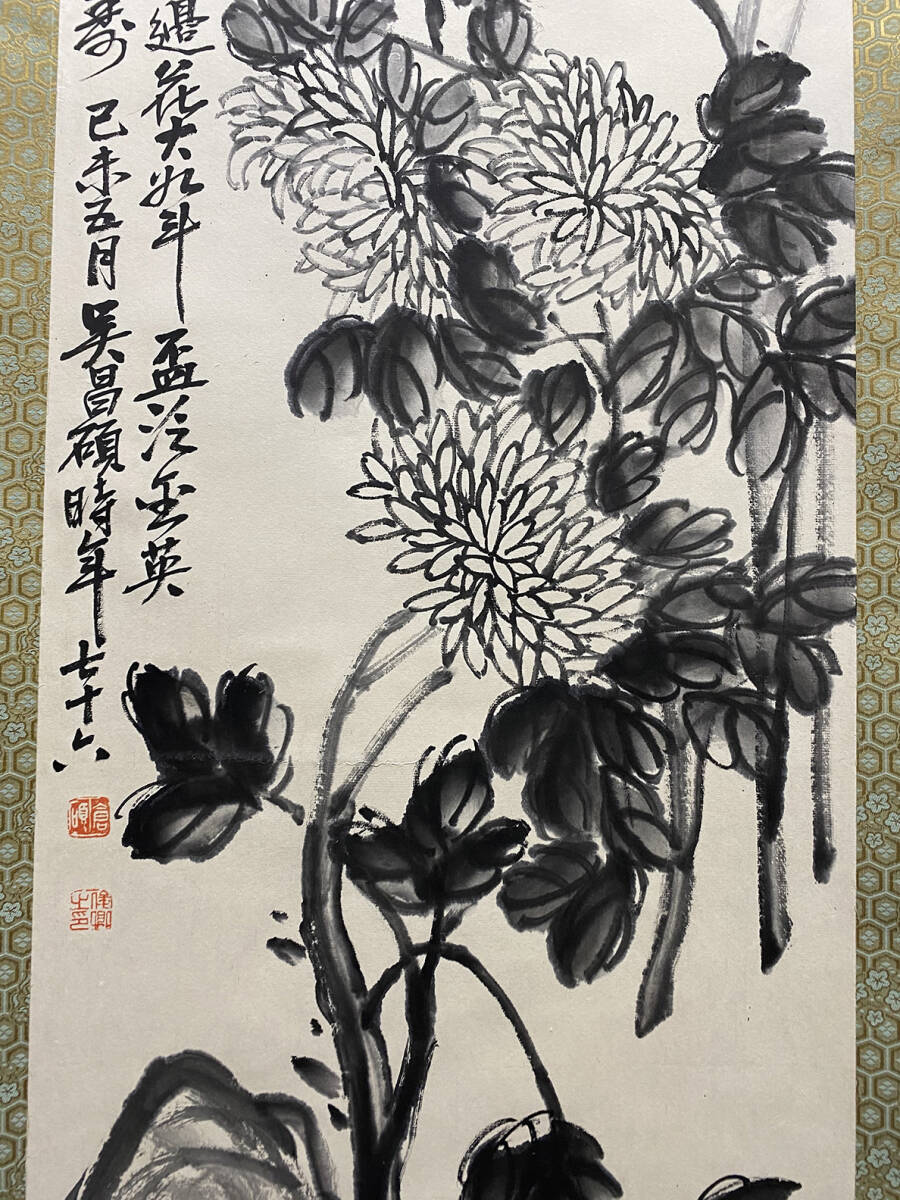 邊菊大如斗盃泛金英
壽己未五月吳昌碩時年七十六
倉碩
俊卿之印